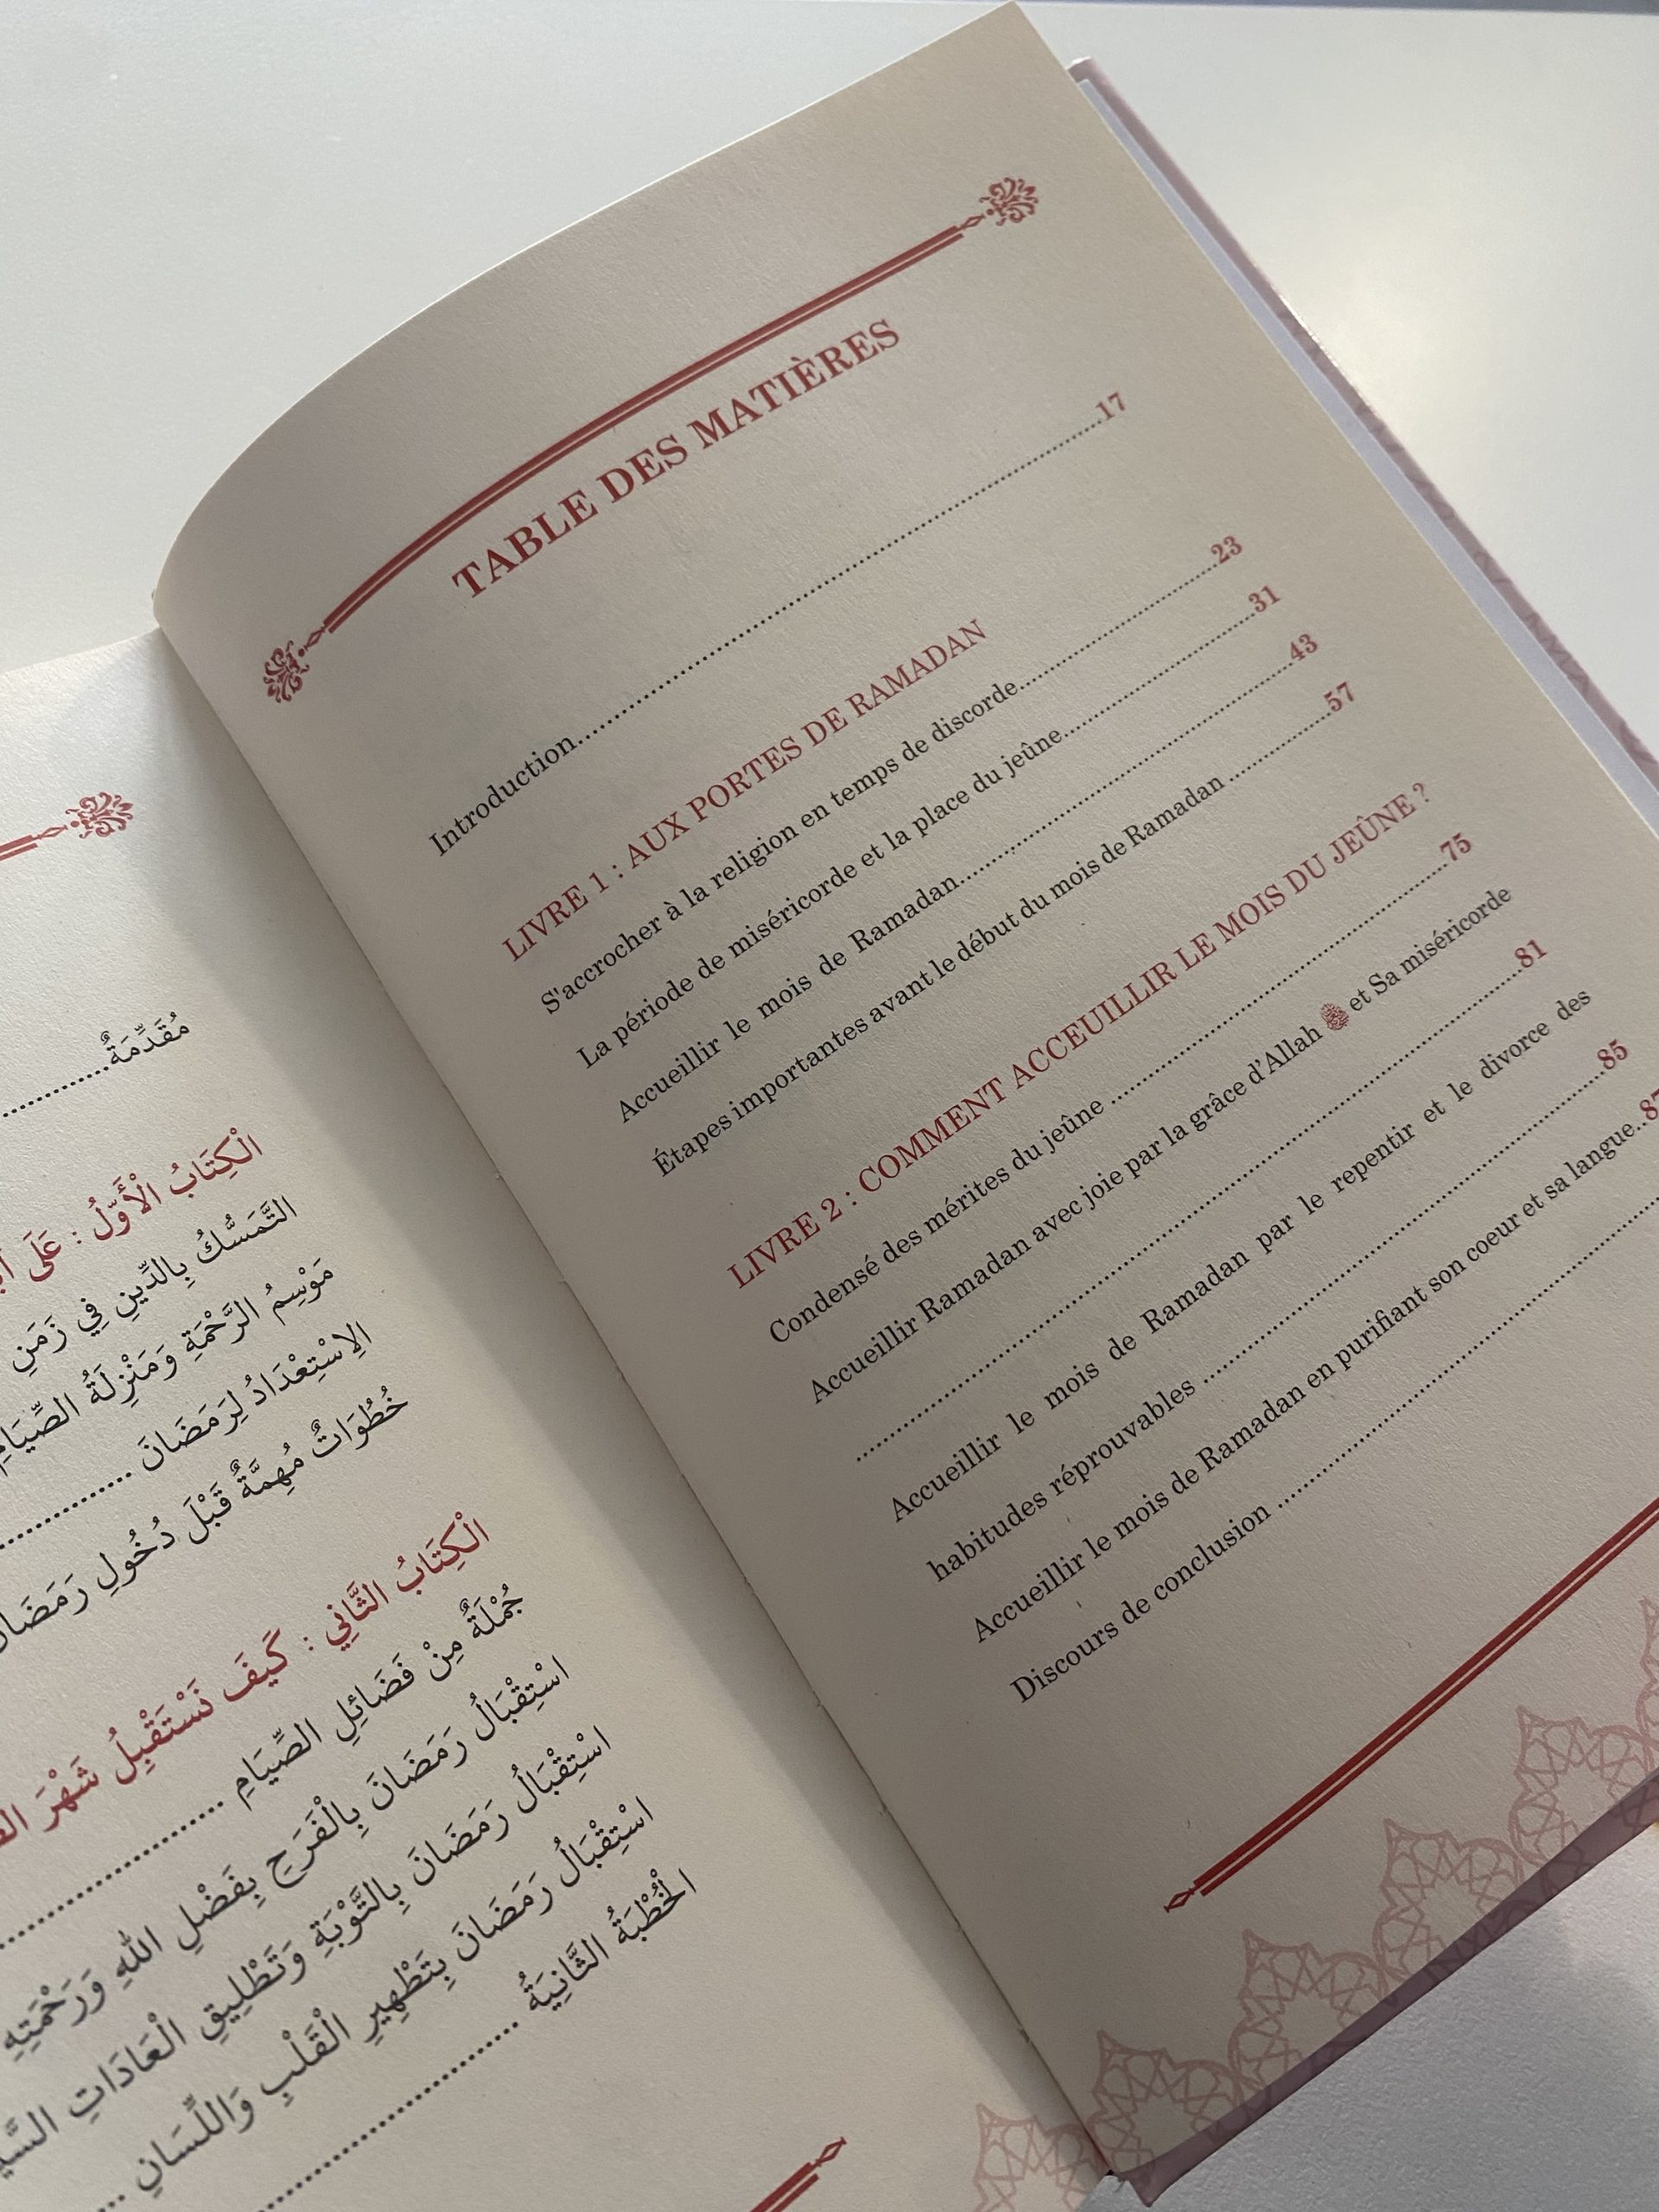 TABLE DES MATIÈRES
Introduction..........17
LIVRE 1 : AUX PORTES DE RAMADAN
S'accrocher à la religion en temps de discorde..........23
La période de miséricorde et la place du jeûne..........31
Accueillir le mois de Ramadan..........43
Étapes importantes avant le début du mois de Ramadan ..........57
LIVRE 2 : COMMENT ACCEUILLIR LE MOIS DU JEÛNE ?
Condensé des mérites du jeûne ..........75
Accueillir Ramadan avec joie par la grâce d'Allah et Sa miséricorde
..........81
Accueillir le mois de Ramadan par le repentir et le divorce des
habitudes réprouvables ..........85
Accueillir le mois de Ramadan en purifiant son coeur et sa langue..87
Discours de conclusion ..........
مُقَدِّمَةٌ..........
الْكِتَابُ الْأَوَّلُ : عَلَى
التَّمَسُّكُ بِالدِّينِ فِي زَمَنِ
مَوْسِمُ الرَّحْمَةِ وَمَنْزِلَةُ الصِّيَامِ
الِاسْتِعْدَادُ لِرَمَضَانَ ..........
خُطُوَاتٌ مُهِمَّةٌ قَبْلَ دُخُولِ رَمَضَانَ
الْكِتَابُ الثَّانِي : كَيْفَ نَسْتَقْبِلُ شَهْرَ
جُمْلَةٌ مِنْ فَضَائِلِ الصِّيَامِ ..........
اسْتِقْبَالُ رَمَضَانَ بِالْفَرَحِ بِفَضْلِ اللهِ وَرَحْمَتِهِ
اسْتِقْبَالُ رَمَضَانَ بِالتَّوْبَةِ وَتَطْلِيقِ الْعَادَاتِ
اسْتِقْبَالُ رَمَضَانَ بِتَطْهِيرِ الْقَلْبِ وَاللِّسَانِ ..........
الْخُطْبَةُ الثَّانِيَةُ ..........